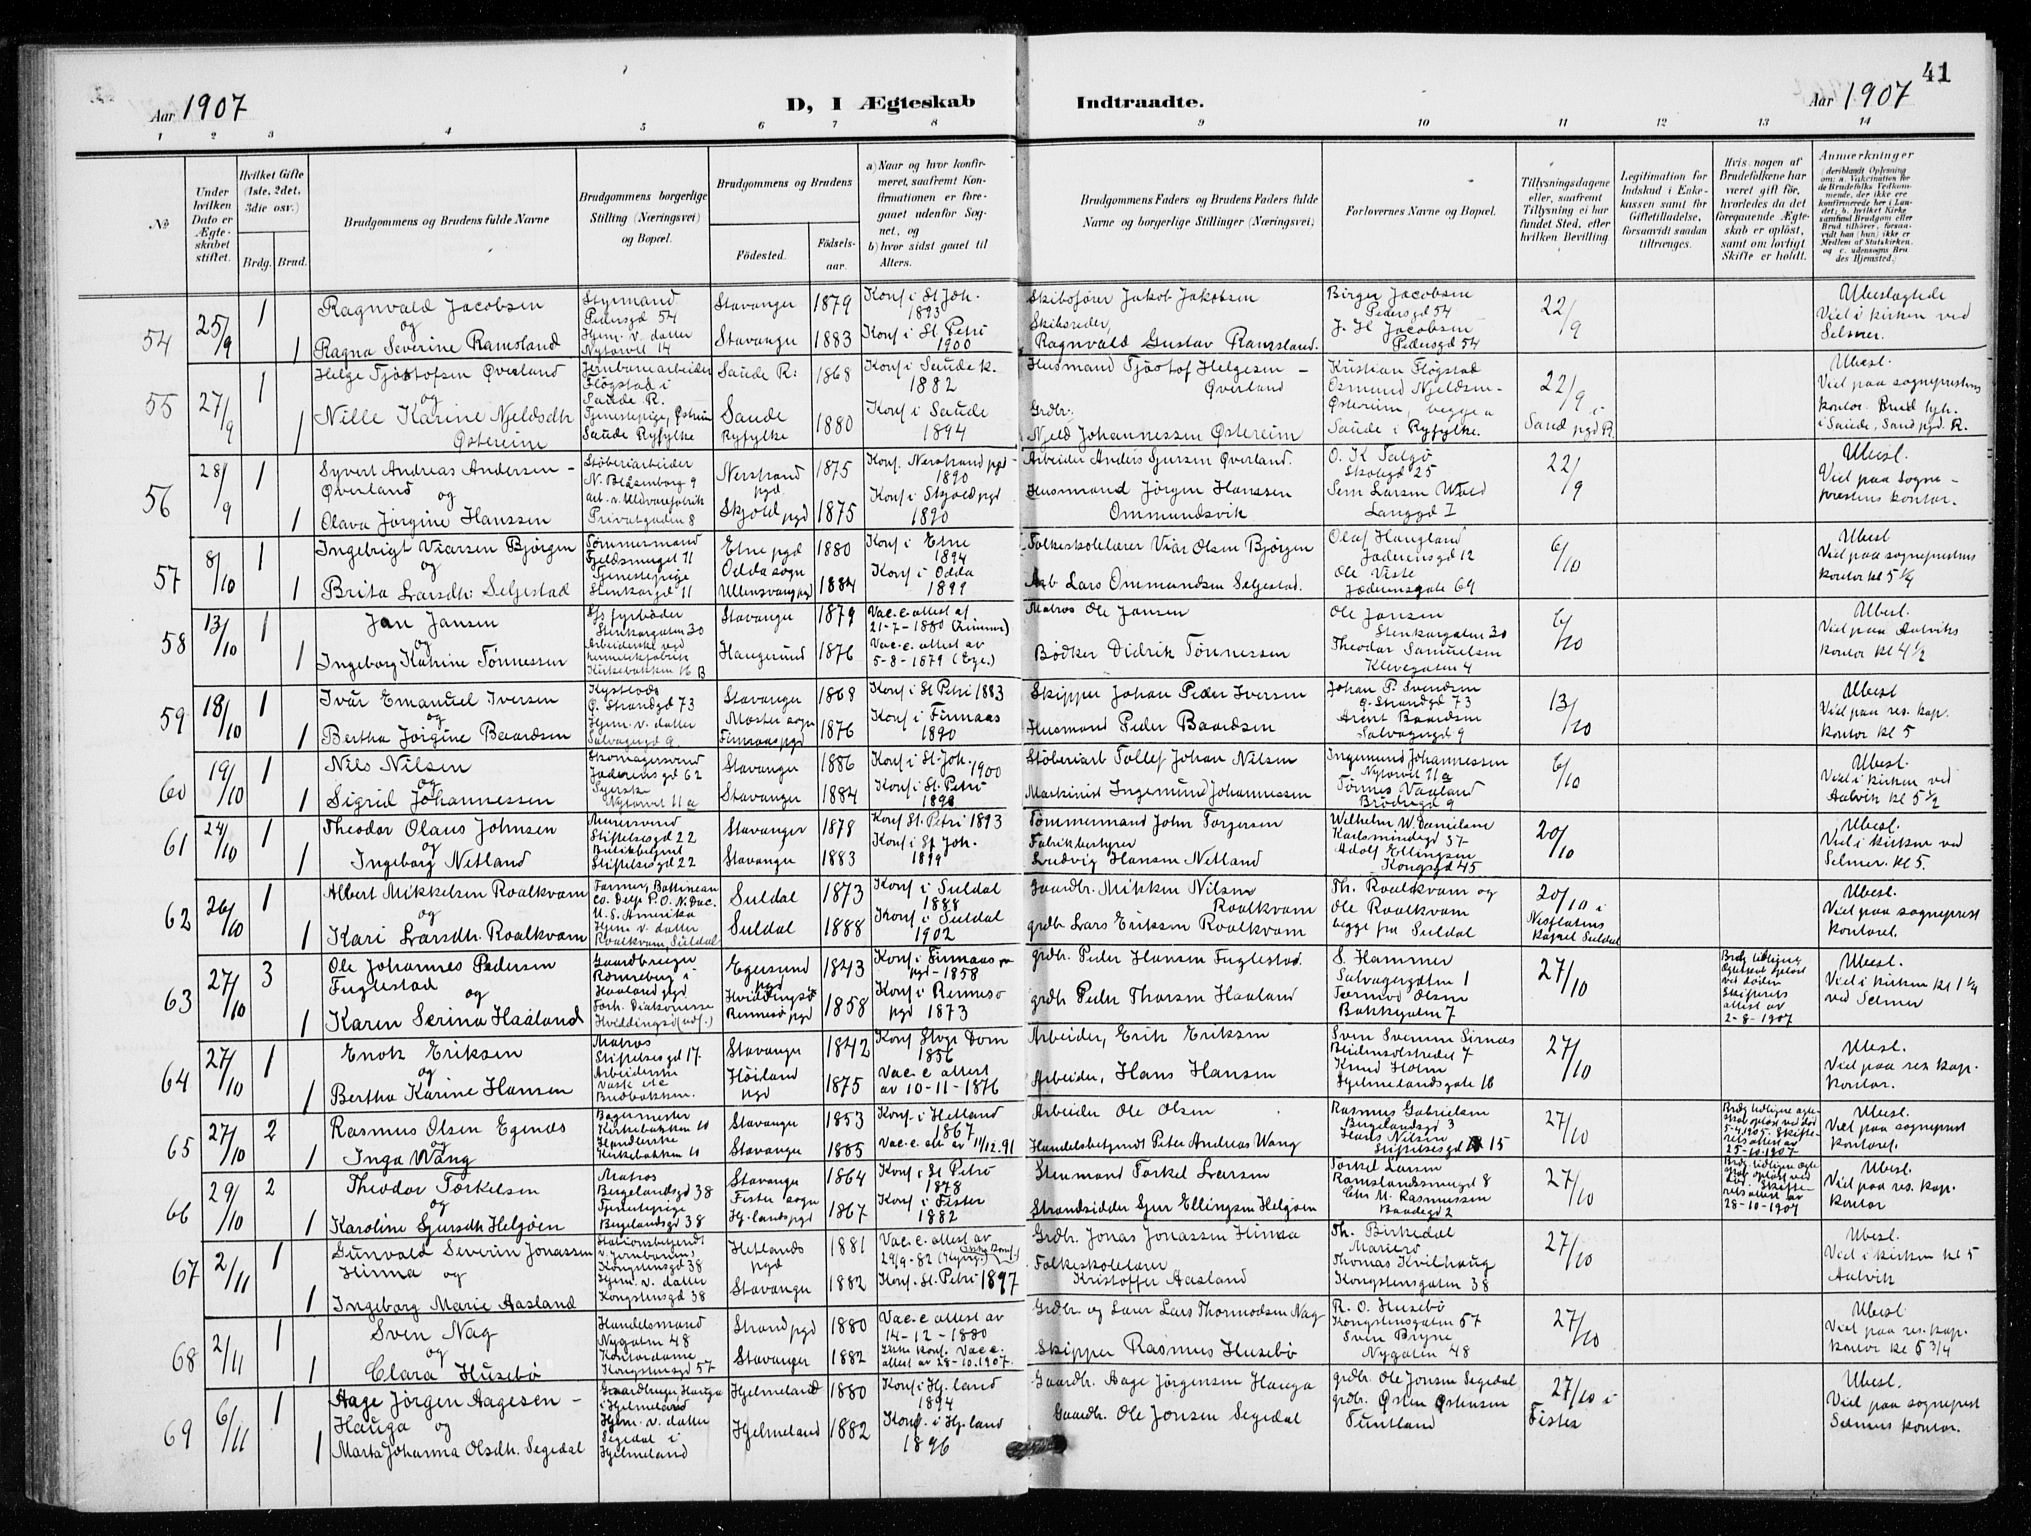 41
Aar 1907
D, I Ægteskab
Indtraadte.
Aar 1907
1 2 3 4 5 6 7 8 9 10 11 12 13 14
No
Under hvilken Dato er Ægteskabet stiftet.
Hvilket Gifte (1ste, 2det, 3die osv.)
Brdg. Brud.
Brudgommens og Brudens fulde Navne
Brudgommens borgerlige Stilling (Næringsvei) og Bopæl.
Brudgommens og Brudens
Fødested.
Fødselsaar.
a) Naar og hvor konfirmeret, saafremt Konfirmationen er foregaaet udenfor Sognet, og
b) hvor sidst gaaet til Alters.
Brudgommens Faders og Brudens Faders fulde Navne og borgerlige Stillinger (Næringsvei)
Forlovernes Navne og Bopæl.
Tillysningsdagene eller, saafremt Tillysning ei har fundet Sted, efter hvilken Bevilling.
Legitimation for Indskud i Enkekassen samt for Giftetilladelse, forsaavidt saadan tiltrænges.
Hvis nogen af Brudefolkene har været gift før, hvorledes da det foregaaende Ægteskab er opløst, samt om lovligt Skifte er holdt.
Anmerkninger
54
25/9
1
1
Ragnvald Jacobsen
og
Ragna Severine Ramsland
Styrmand
Pedersgd 54
Hjem. v. datter
Nytorvet 14
Stavanger 1879
Stavanger 1883
Konf i St Joh.
1893
Konf i St. Petri
1900
Skibsfører Jakob Jakobsen
Skibsreder,
Ragnvald Gustav Ramsland.
Birger Jacobsen
Pedersgd 54
J. H Jacobsen
Pedersgd 54
22/9
Ubeslægtede
Viel i kirken ved
Selmer.
55
27/9
1
1
Helge Tjøstofsen Øverland
og
Nille Karine Njeldsdtr
Østereim
Jernbanearbeider
Fløgstad i
Saude R.
Tjenestepige,
Saude Ryfylke
Saude R: 1868
Saude
Ryfylke 1880
Konf i Saude k.
1882
Konf i Saude
1894
Husmand Tjøstof Helgesen -
Øverland
Grdbr.
Njeld Johannessen Østereim
Kristian Fløgstad
Osmund Njeldsen -
Østereim, begge a
Saude i Ryfylke.
22/9 i
Sand pgd R.
Ubesl.
Viel paa sogneprestens
kontor. Brud hjh.
i Saude, Sand pgd. R.
56
28/9
1
1
Syvert Andreas Andersen -
Øverland
og
Olava Jørgine Hanssen
Støberiarbeider
N. Blåsenborg 9
arb. v. Uldvarefabrik
Privatgaden 8
Nerstrand
pgd 1875
Skjold pgd 1875
Konf. Nerstrand pgd -
1890
Konf i Skjold pgd
1890
Arbeider Anders Gursen Øverland.
Husmand Jörgen Hanssen
Ommundsvik
O. K Talgø
Skolegd 25
Sem Larsen Wold
Langgd I
22/9
Ubesl.
Viel paa sogne -
prestens kontor.
57
8/10
1
1
Ingebrigt Viarsen Bjørgen
og
Brita Larsdtr. Seljestad
Tømmermand
Fjeldsmuget 11
Tjenestepige
Stenkargd 11
Etne pgd 1880
Odda sogn
Ullensvang pgd 1884
Konf i Etne
1894
Konf i Odda
1899
Folkeskolelærer Viar Olsen Bjørgen
Arb Lars Ommundsen Seljestad.
Olaf Haugland
Jæderensgd 12
Ole Viste
Jæderensgate 69
6/10
Ubesl
Viel paa sogneprestens
kontor kl 5 1/4
58
13/10
1
1
Jan Jansen
og
Ingeborg Katrine Tønnessen
fyrbøder
Stenkargaten 30
Arbeiderske ved
hermetikfabrik
Kirkebakken 16 B
Stavanger 1879
Haugesund 1876
Vac. c. attest af
21-7-1880
Vac-c. attest av
5-8-1879
Matros Ole Jansen
Bødker Didrik Tønnessen
Ole Jansen
Stenkargaten 30
Theodor Samuelsen
Klevegaten 4
6/10
Ubesl.
Viel paa Aalviks
kontor kl 4 1/2
59
18/10
1
1
Ivar Emanuel Iversen
og
Bertha Jørgine Baardsen
Kystlods
Ø. Strandgd 73
Hjem. v. datter
Salvagergd 9
Stavanger 1868
Moster sogn
Finnaas pgd 1876
Konf i St Petri 1883
Konf i Finnaas
1890
Skipper Johan Peder Iversen
Husmand Peder Baardsen
Johan P. Svendsen
Ø. Strandgd 73
Arent Baardsen
Salvagergd 9
13/10
Ubesl
Viel paa res. kap.
kontor kl 5
60
19/10
1
1
Nils Nilsen
og
Sigrid Johannessen
Skomagersvend
Jæderensgd 62
Syerske
Nytorvet 11 a
Stavanger 1886
Stavanger 1884
Konf i St. Joh.
1900
Konf i St. Petri
1898
Støberiarb Tollef Johan Nilsen
Maskinist Ingemund Johannessen
Ingemund Johannessen
Nytorvet 11 a
Tønnes Vaaland
Brødregd 9
6/10
Ubesl.
Viel i kirken ved
Aalvik kl 5 1/2
61
24/10
1
1
Theodor Olaus Johnsen
og
Ingeborg Netland
Murersvend
Stiftelsesgd 22
Butikbetjent
Stiftelsesgd 22
Stavanger 1878
Stavanger 1883
Konf St. Petri 1893
Konf i St Joh.
1899
Tømmermand John Torgersen
Fabrikbestyrer
Ludvig Hansen Netland
Wilhelm W. Danielsen
Karlsmindegd 57
Adolf Ellingsen
Kongsgd 45
20/10
Ubesl.
Viel i kirken ved
Selmer. kl 5.
62
26/10
1
1
Albert Mikkelsen Roalkvam
og
Kari Larsdtr. Roalkvam
Farmer, Bottineau
Co. P. O. N. Dac.
U. S. Amerika
Hjem v. datter
Roalkvam, Suldal
Suldal 1873
Suldal 1888
Konf i Suldal
1888
Konf i Suldal
1902
Gaardbr. Mikkel Nilsen
Roalkvam
grdbr Lars Eriksen Roalkvam
Th. Roalkvam og
Ole Roalkvam
begge fra Suldal
20/10 i
Nesflatens
kapel Suldal
Ubesl.
Viel paa sogneprest
kontoret.
63
27/10
3
1
Ole Johannes Pedersen
Fuglestad
og
Karen Serina Haaland
Gaardbruger
Rønneberg i
Haaland pgd
Forh. Diakonisse
Hviddingsø
Egersund
pgd 1843
Hviddingsø
Rennesø pgd 1858
Konf i Finnaas
pgd - 1858
Konf i Rennesø
pgd 1873
grdbr. Peder Hansen Fuglestad.
grdbr Peder Thorsen Haaland
S. Hammer
Salvagergaten 1
Tormod Olsen
Bakkegaten 7
27/10
Brdg tidligere
Ægteskab opløst
ved døden
Skifterets
attest av
2-8-1907
Ubesl.
Viel i kirken kl 1 1/4
ved Selmer
64
27/10
1
1
Enok Eriksen
og
Bertha Karine Hansen
Matros
Stiftelsesgd 17
Arbeiderske
Vask etc
Budbakken.
Stavanger 1842
Høiland
pgd 1875
Konf Stvgr Dom
1856
Vac-c attest
av 10-11-1876
Arbeider, Erik Eriksen
Arbeider, Hans Hansen
Sven Svensen Sirnæs
Bleidensolstredet 7
Knud Holm
Hjelmelandsgate 16
27/10
Ubesl.
Viel paa res. kap.
kontor.
65
27/10
2
1
Rasmus Olsen Egenæs
og
Inga Wang
Bagermester
Kirkebakken 10
Handlerske
Kirkebakken 10
Stavanger 1853
Stavanger 1885
Konf. i Hetland
1867
Vac-c. att av 11/12.91
Arbeider Ole Olsen
Handelsbetjendt Peter Andreas Wang
Rasmus Gabrielsen
Bergelandsgd 3
Hans Nilsen
Stiftelsesgd 15
27/10
Brdg tidligere ægteskab opløst ved død
5-4-1905. Skifterets attest av
25-10-1907
Ubesl.
Viel paa sogneprest
kontoret.
66
29/10
2
1
Theodor Torkelsen
og
Karoline Gjersdtr Helgøen
Matros
Bergelandsgd 38
Tjenestepige
Bergelandsgd 38
Stavanger 1864
Fister sogn
Hj.landspgd 1867
Konf. i St Petri
1878
Konf. i Fister
1882
Torkel Larsen
Strandsidder Gjer Ellingsen Helgøen
Torkel Larsen
Ramslandsmugd 8
Chr. M. Rasmussen
Baadegd 2
27/10
Brdg. tidligere ægteskab opløst ved
død. Skifterets attest av
28-10-1907
Ubesl.
Viel paa res. kap.
kontor
67
2/11
1
1
Gunvald Severin Jonassen
Hinna og
Ingeborg Marie Aasland
Stationsbetjendt
v. Jernbanen,
Kongstensgd 38
Hjem. v. datter
Kongstensgd 38
Hetlands
pgd 1881
Stavanger 1882
Vac-c. attest av
29/9-82
Konf. St. Petri 1897
Grdbr. Jonas Jonassen Hinna
Folkeskolelærer
Kristoffer Aasland
Th. Birkedal
Mariero
Thomas Kvilhaug
Kongstensgaten 38
27/10
Ubesl.
Viel i kirken kl 5
Aalvik
68
2/11
1
1
Sven Nag
og
Clara Husebø
Handelsmand
Nygaten 48
Kontordame
Kongstensgd 57
Strand pgd 1880
Stavanger 1882
Vac-c. attest av
14-12-1880
Ikke konf. Vac c.
attest av 28-10.1907.
Grdbr. og Lærer Lars Thormodsen Nag
Skipper Rasmus Husebø
R. O. Husebø
Kongstensgaten 57
Sven Bryne
Nygaten 48
27/10
Ubesl
Viel paa res. kap.
kontor kl 5 3/4
69
6/11
1
1
Aage Jørgen Aagesen -
Hauga og
Marta Johanna Olsdtr. Segedal
Gaardbruger Hauga
i Hjelmeland
Hjem. v. datter
Segedal i
Hjelmeland
Hjelmeland 1880
Hjelmeland 1882
Konf i Hj. land
1894
Konf. i Hj. land
1896
Gaardbr. Aage Jørgensen Hauga
Gaardbr. Ole Jonsen Segedal
grdbr. Ole Jonsen Segedal
grdbr. Østen Østensen
Tuntland
27/10 i
Fister
Ubesl.
Viel paa sogneprest
Selmers kontor.